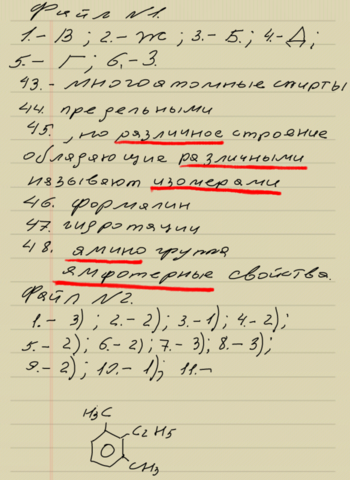 Файл №1.
1.- В; 2.- Ж; 3.- Б; 4.- Д;
5.- Г; 6.- З.
43.- многоатомные спирты
44. предельными
45. , но различное строение
обладающие различными
называют изомерами
46. формалин
47. гидротации
48. амино группа
амфотерные свойства.
Файл №2.
1.- 3); 2.- 2); 3.- 1); 4.- 2);
5.- 2); 6.- 2); 7.- 3); 8.- 3);
9.- 2); 10.- 1); 11.-
H3C
C2H5
CH3